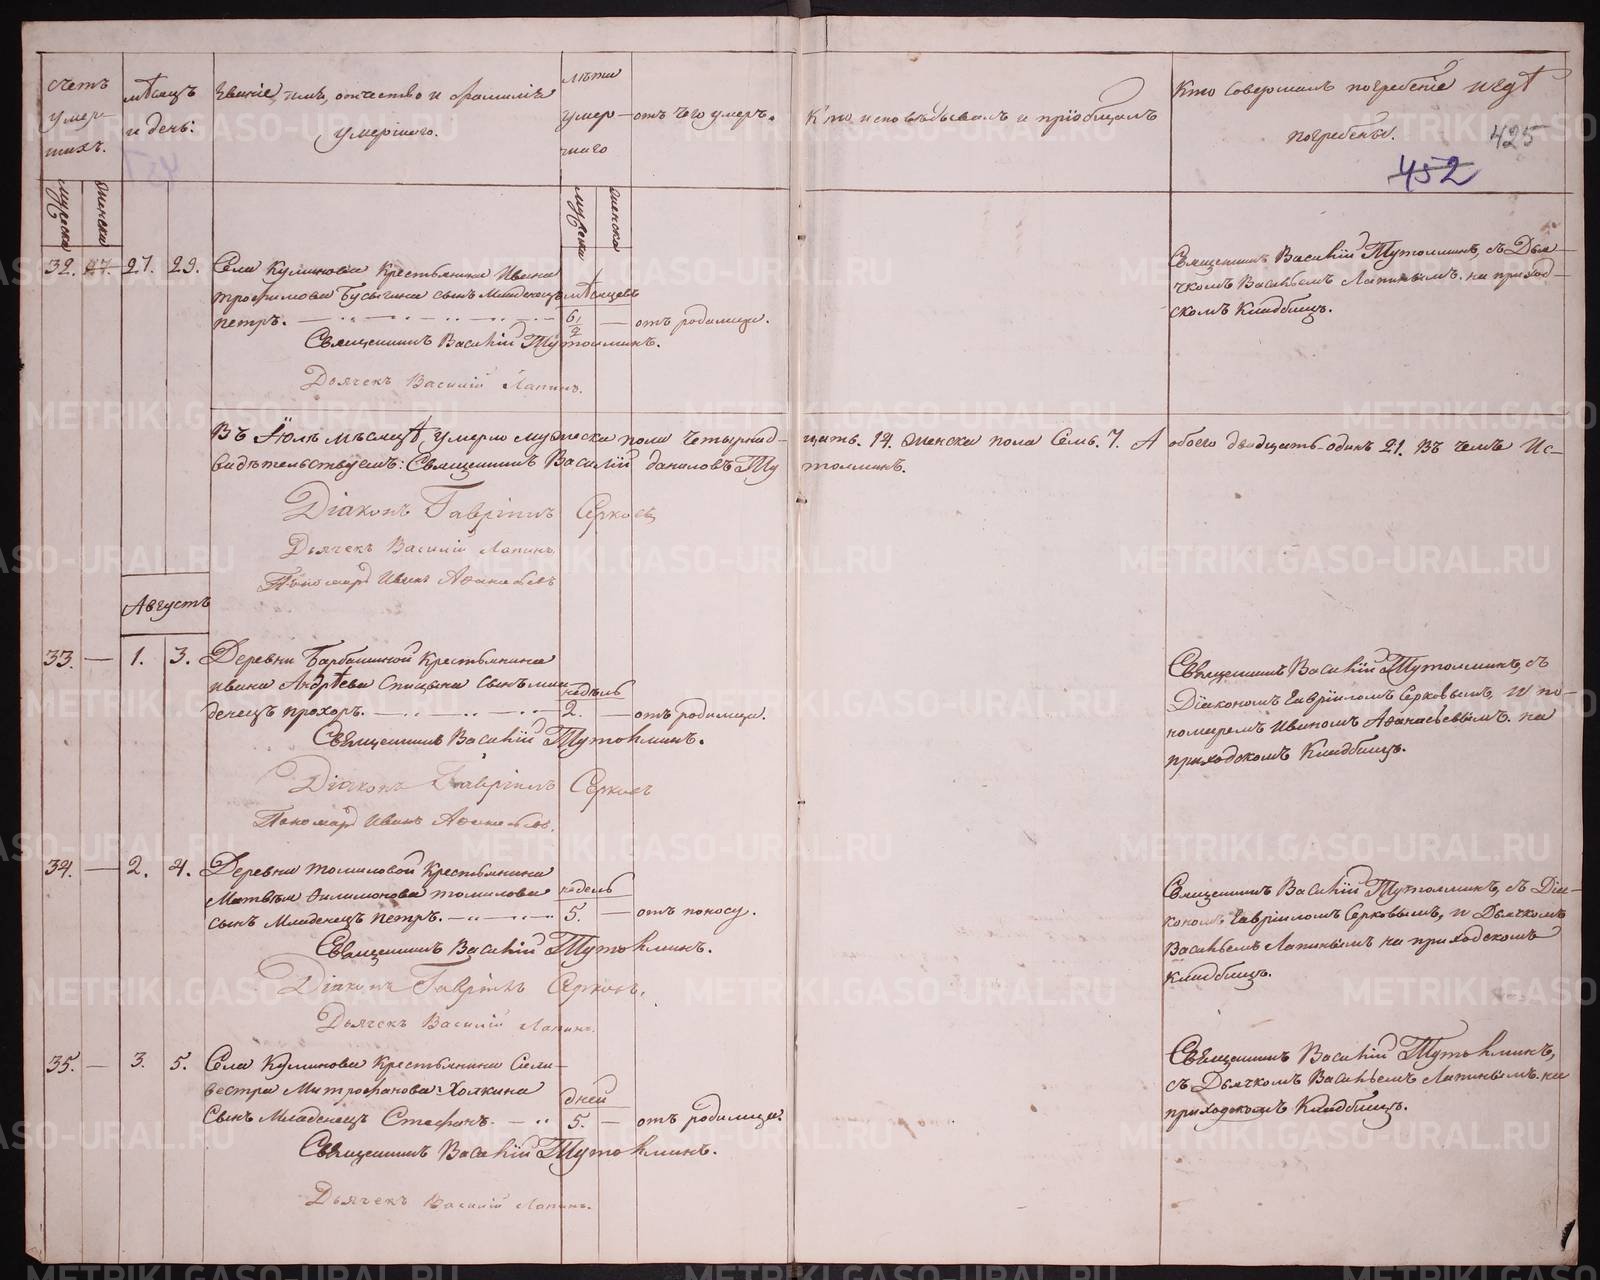 Счетъ умер-шихъ.
мѣсяцъ и день:
Званіе, имя, отчество и фамилія умершаго.
лѣта умер-шаго
отъ чего умеръ.
Кто исповѣдывалъ и пріобщалъ
Кто совершалъ погребеніе и гдѣ погребены.
425
452
мужеска
женска
мужеска
женска
32. 27. 29. Села Куликова Крестьянина Ивана
Трофимова Бусыгина сынъ Младенецъ мѣсяцевъ
Петръ. 6 1/2 — отъ родимца.
Священникъ Василій Тутолминъ.
Дьячекъ Василій Лапинъ.
Священникъ Василій Тутолминъ, съ Дья-
чкомъ Васильемъ Лапинымъ. на приход-
скомъ Кладбищѣ.
Въ Іюлѣ мѣсяцѣ, умерло мужеска пола четырнад-цать. 14. женска пола Семь. 7. А обоего двадцать-одинъ 21. Въ чемъ и с-
видѣтельствуемъ: Священникъ Василій Даниловъ Ту-толминъ.
Діаконъ Гавріилъ Серковъ
Дьячекъ Василій Лапинъ.
Пономарь Иванъ Аѳанасьевъ
Августъ
33. — 1. 3. Деревни Барбашиной Крестьянина
Ивана Андрѣева Спицына сынъ мла- недѣль
денецъ Прохоръ. 2. — отъ родимца.
Священникъ Василій Тутолминъ.
Діаконъ Гавріилъ Серковъ
Пономарь Иванъ Аѳанасьевъ.
Священникъ Василій Тутолминъ, съ
Діакономъ Гавріиломъ Серковымъ, и по-
номаремъ Иваномъ Аѳанасьевымъ. на
приходскомъ Кладбищѣ.
34. — 2. 4. Деревни Томиловой Крестьянина
Матвѣя Филимонова Томилова недель
сынъ Младенецъ Петръ. 5. — отъ поносу.
Священникъ Василій Тутолминъ.
Діаконъ Гавріилъ Серковъ.
Дьячекъ Василій Лапинъ.
Священникъ Василій Тутолминъ, съ Діа-
кономъ Гавріиломъ Серковымъ, и Дьячкомъ
Васильемъ Лапинымъ на приходскомъ
кладбищѣ.
35. — 3. 5. Села Куликова Крестьянина Сили-
вестра Митрофанова Холкина дней
Сынъ Младенецъ Стефанъ. 5. — отъ родимца.
Священникъ Василій Тутолминъ.
Дьячекъ Василій Лапинъ.
Священникъ Василій Тутолминъ,
съ Дьячкомъ Васильемъ Лапинымъ. на
приходскомъ Кладбищѣ.
METRIKI.GASO-URAL.RU